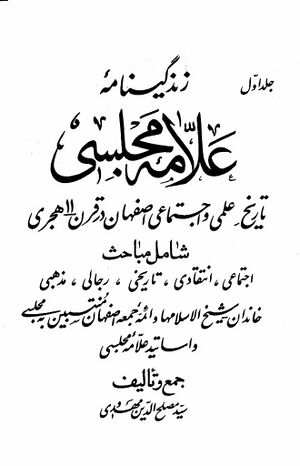 جلد اوّل
زندگینامهٔ
علّامه مجلسی
تاریخ علمی و اجتماعی اصفهان در قرن ۱۱ هجری
شامل مباحث
اجتماعی ، انتقادی ، تاریخی ، رجالی ، مذهبی
خاندان شیخ الاسلامها و ائمهٔ جمعه اصفهان منتسبین به مجلسی
و اساتید علّامه مجلسی
جمع و تألیف
سیّد مصلح الدین مهدوی